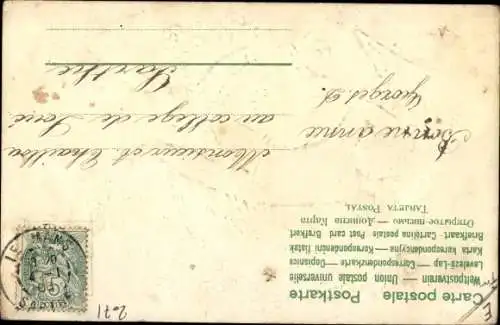 Carte postale Postkarte
Weltpostverein — Union postale universelle
Levelező-Lap—Correspondenzkarte—Dopisnice
Karta korespondencyjna—Korespondenční lístek
Briefkaart Cartolina postale Post card Brefkort
Открытое письмо — Дописна Карта
TARJETA POSTAL
Monsieur et Chaillou
au collège de Loué
Sarthe
Bonne année
Georges
LE MANS
SARTHE
5
2071
E